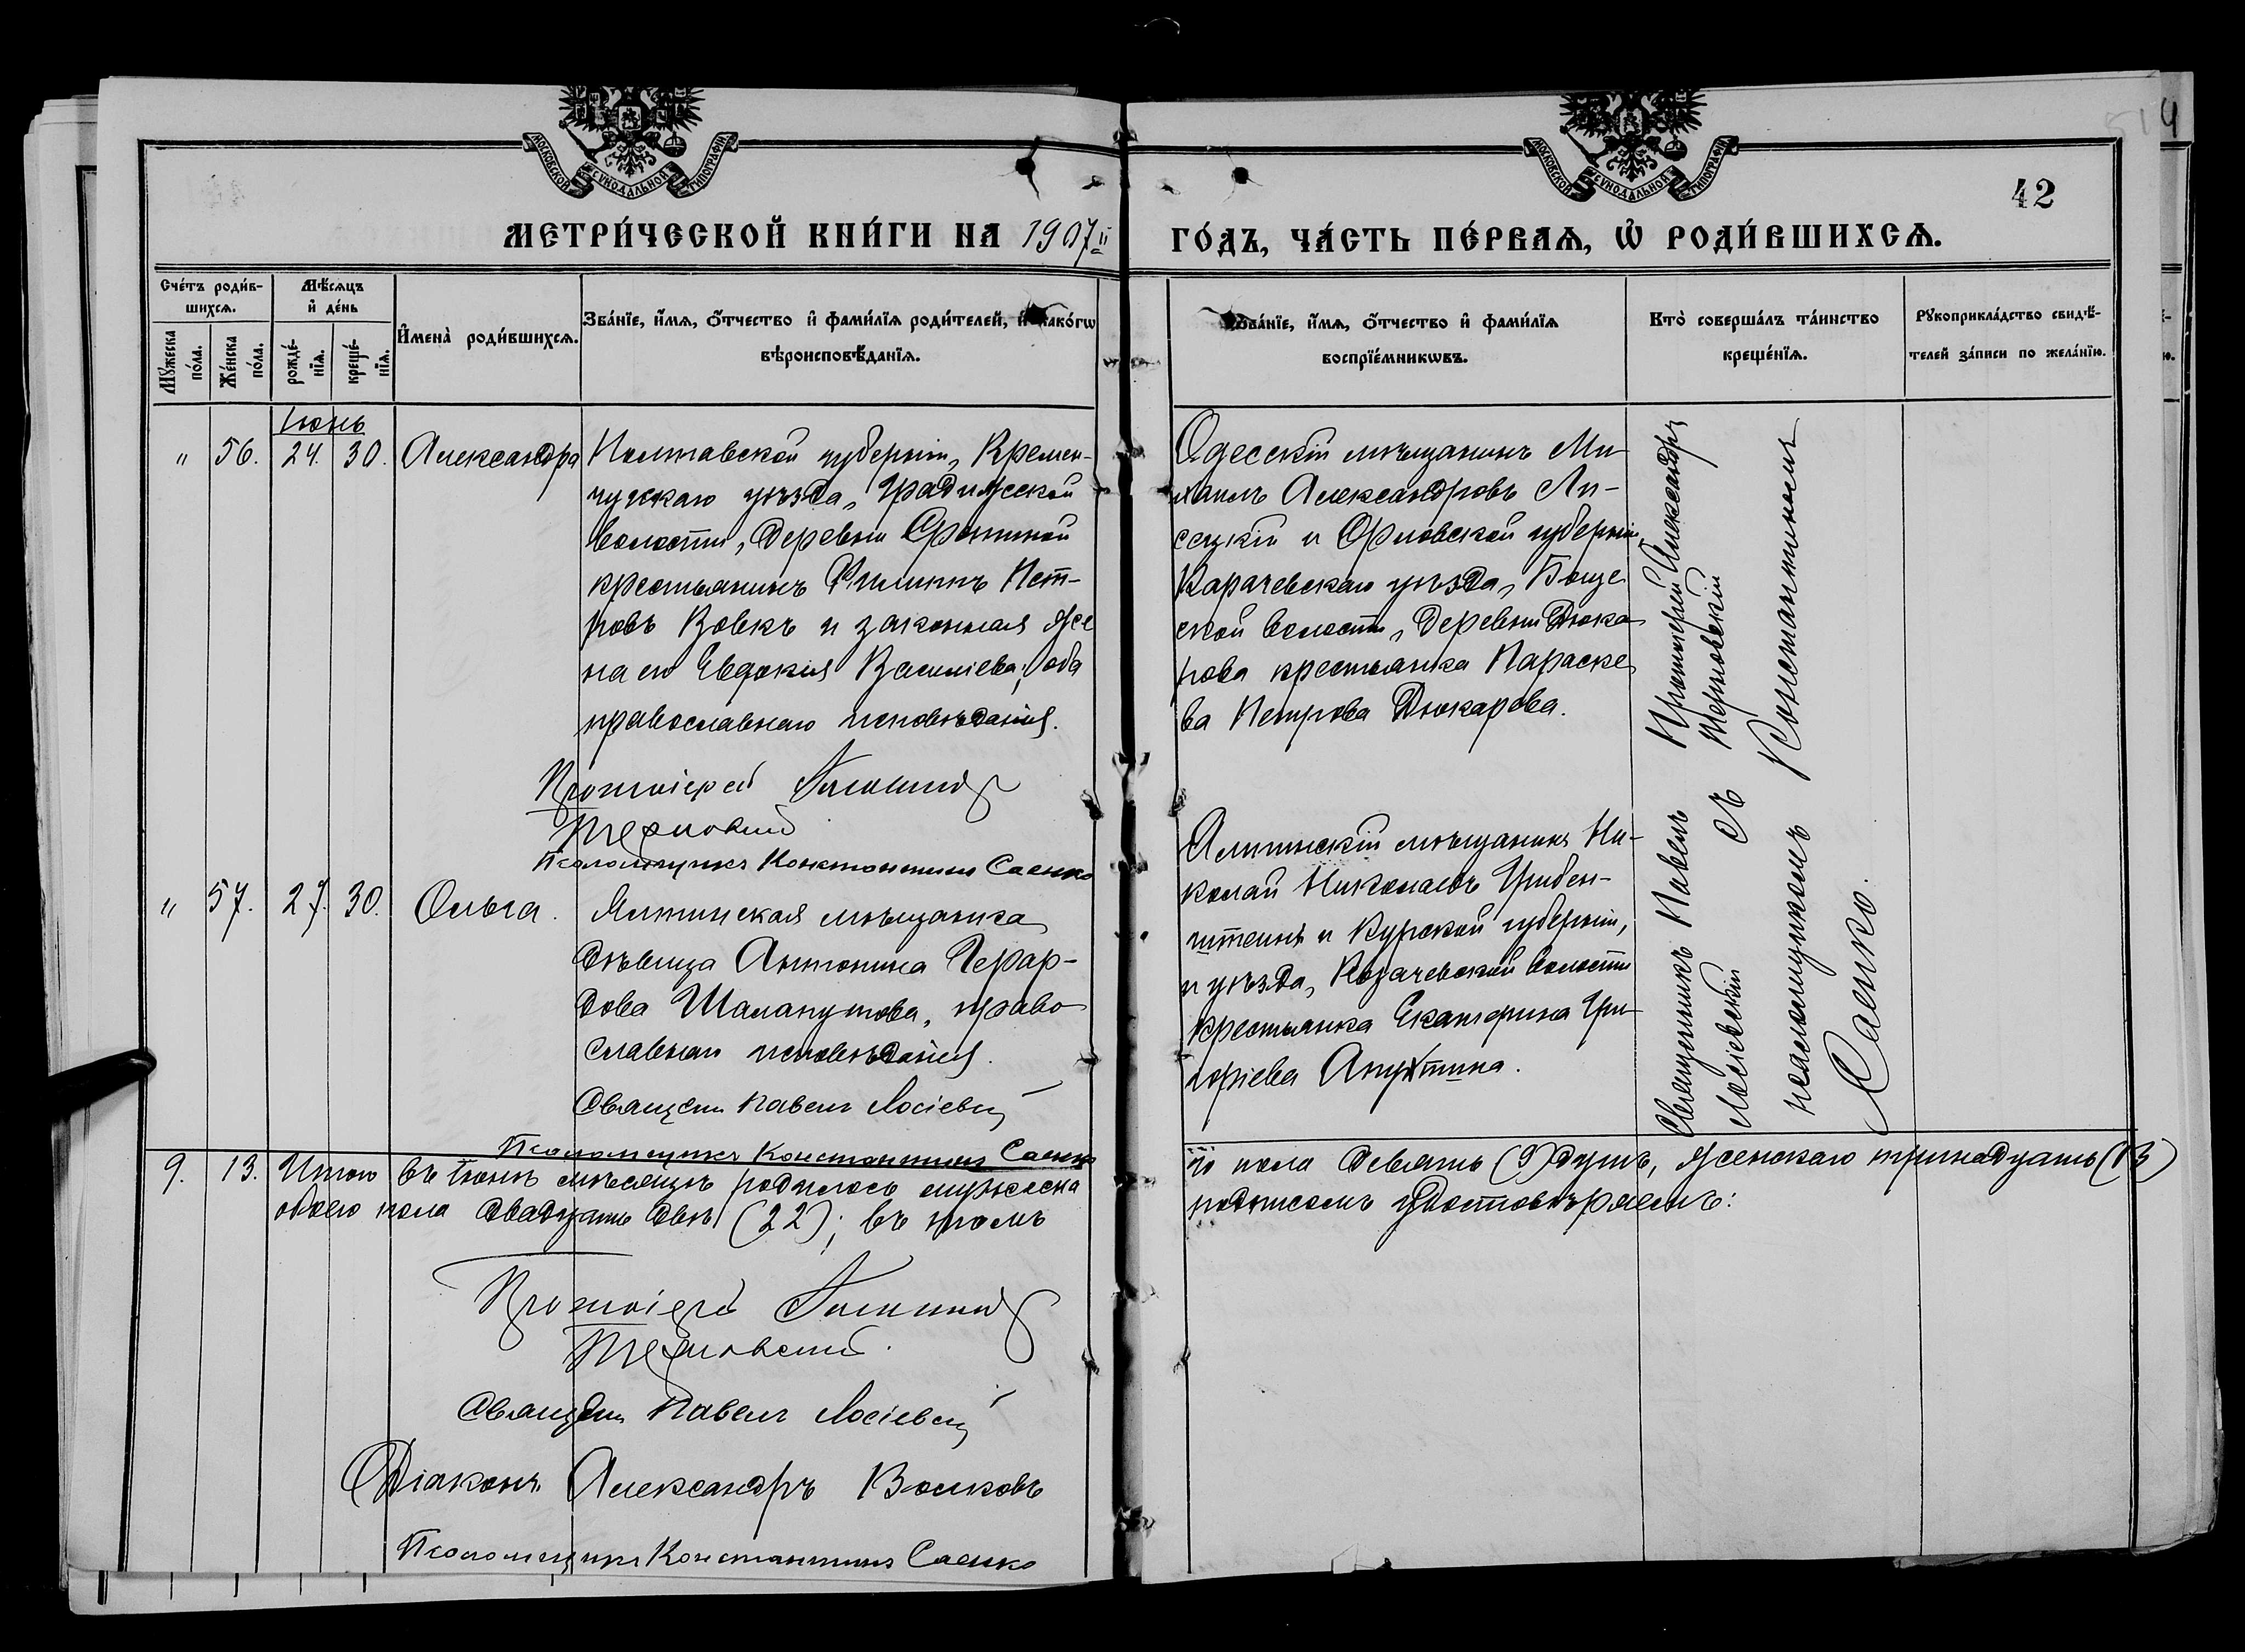 МОСКОВСКОЙ СѴНОДАЛЬНОЙ ТИПОГРАФІИ
МОСКОВСКОЙ СѴНОДАЛЬНОЙ ТИПОГРАФІИ
42
МЕТРИ́ЧЕСКОЙ КНИ́ГИ НА 1907й
ГО́ДЪ, ЧА́СТЬ ПЕ́РВАѦ, Ѡ҆ РОДИ́ВШИХСѦ.
Сче́тъ роди́в-
шихсѧ.
Мѣ́сѧцъ
и҆ де́нь
Мꙋ́жеска
по́ла.
Же́нска
по́ла.
рожде́-
нїѧ.
креще́-
нїѧ.
И҆мена̀ роди́вшихсѧ.
Зва́нїе, и҆́мѧ, ѻ҆́тчество и҆ фами́лїѧ роди́телей, и҆ како́гѡ
вѣроисповѣ́данїѧ.
Зва́нїе, и҆́мѧ, ѻ҆́тчество и҆ фами́лїѧ
воспрїе́мникѡвъ.
Кто̀ соверша́лъ та́инство
креще́нїѧ.
Рꙋкоприкла́дство свидѣ́-
телей за́писи по жела́нїю.
Іюнь
" 56. 24. 30. Александра
Полтавской губерніи, Кремен-
чугскаго уѣзда, Градижсской
волости, деревни
крестьянинъ Филиппъ Пет-
ровъ Вовкъ и законная же
на его Евдокия Василіева; оба
православнаго исповѣданія.
Протоіерей
Терновский
Псаломщикъ Константинъ Саенко
Одесскій мѣщанинъ Ми-
хаилъ Александровъ Ли-
сецкій и Орловской губерніи,
Карачевскаго уѣзда, Боще
ской волости, деревни Дюка
рова крестьянка Параске
ва Петрова Дюкарова.
Протоіерей Александръ
Терновскій
съ
Константиномъ
" 57. 27. 30. Ольга.
Ялтинская мѣщанка
дѣвица Антонина Герар-
дова Шалапутова, право
славнаго исповѣданія.
Священ. Павелъ Лосіевскій
Псаломщикъ Константинъ Саенко
Ялтинскій мѣщанинъ Ни-
колай Николаевъ Грибен-
штеинъ и Курской губерніи,
и уѣзда, волости
крестьянка Екатерина Гри-
горіева Апухтина.
Священникъ Павелъ
Лосіевскій
псаломщикомъ
Саенко.
9. 13. Итого въ Іюнѣ мѣсяцѣ родилось мужеска
обоего пола двадцать двѣ (22); въ томъ
го пола девять (9) душъ, женскаго тринадцать (13)
подписомъ удостовѣряемъ:
Протоіерей
Терновский.
Священ. Павелъ Лосіевскій
Діаконъ Александръ Волковъ
Псаломщикъ Константинъ Саенко